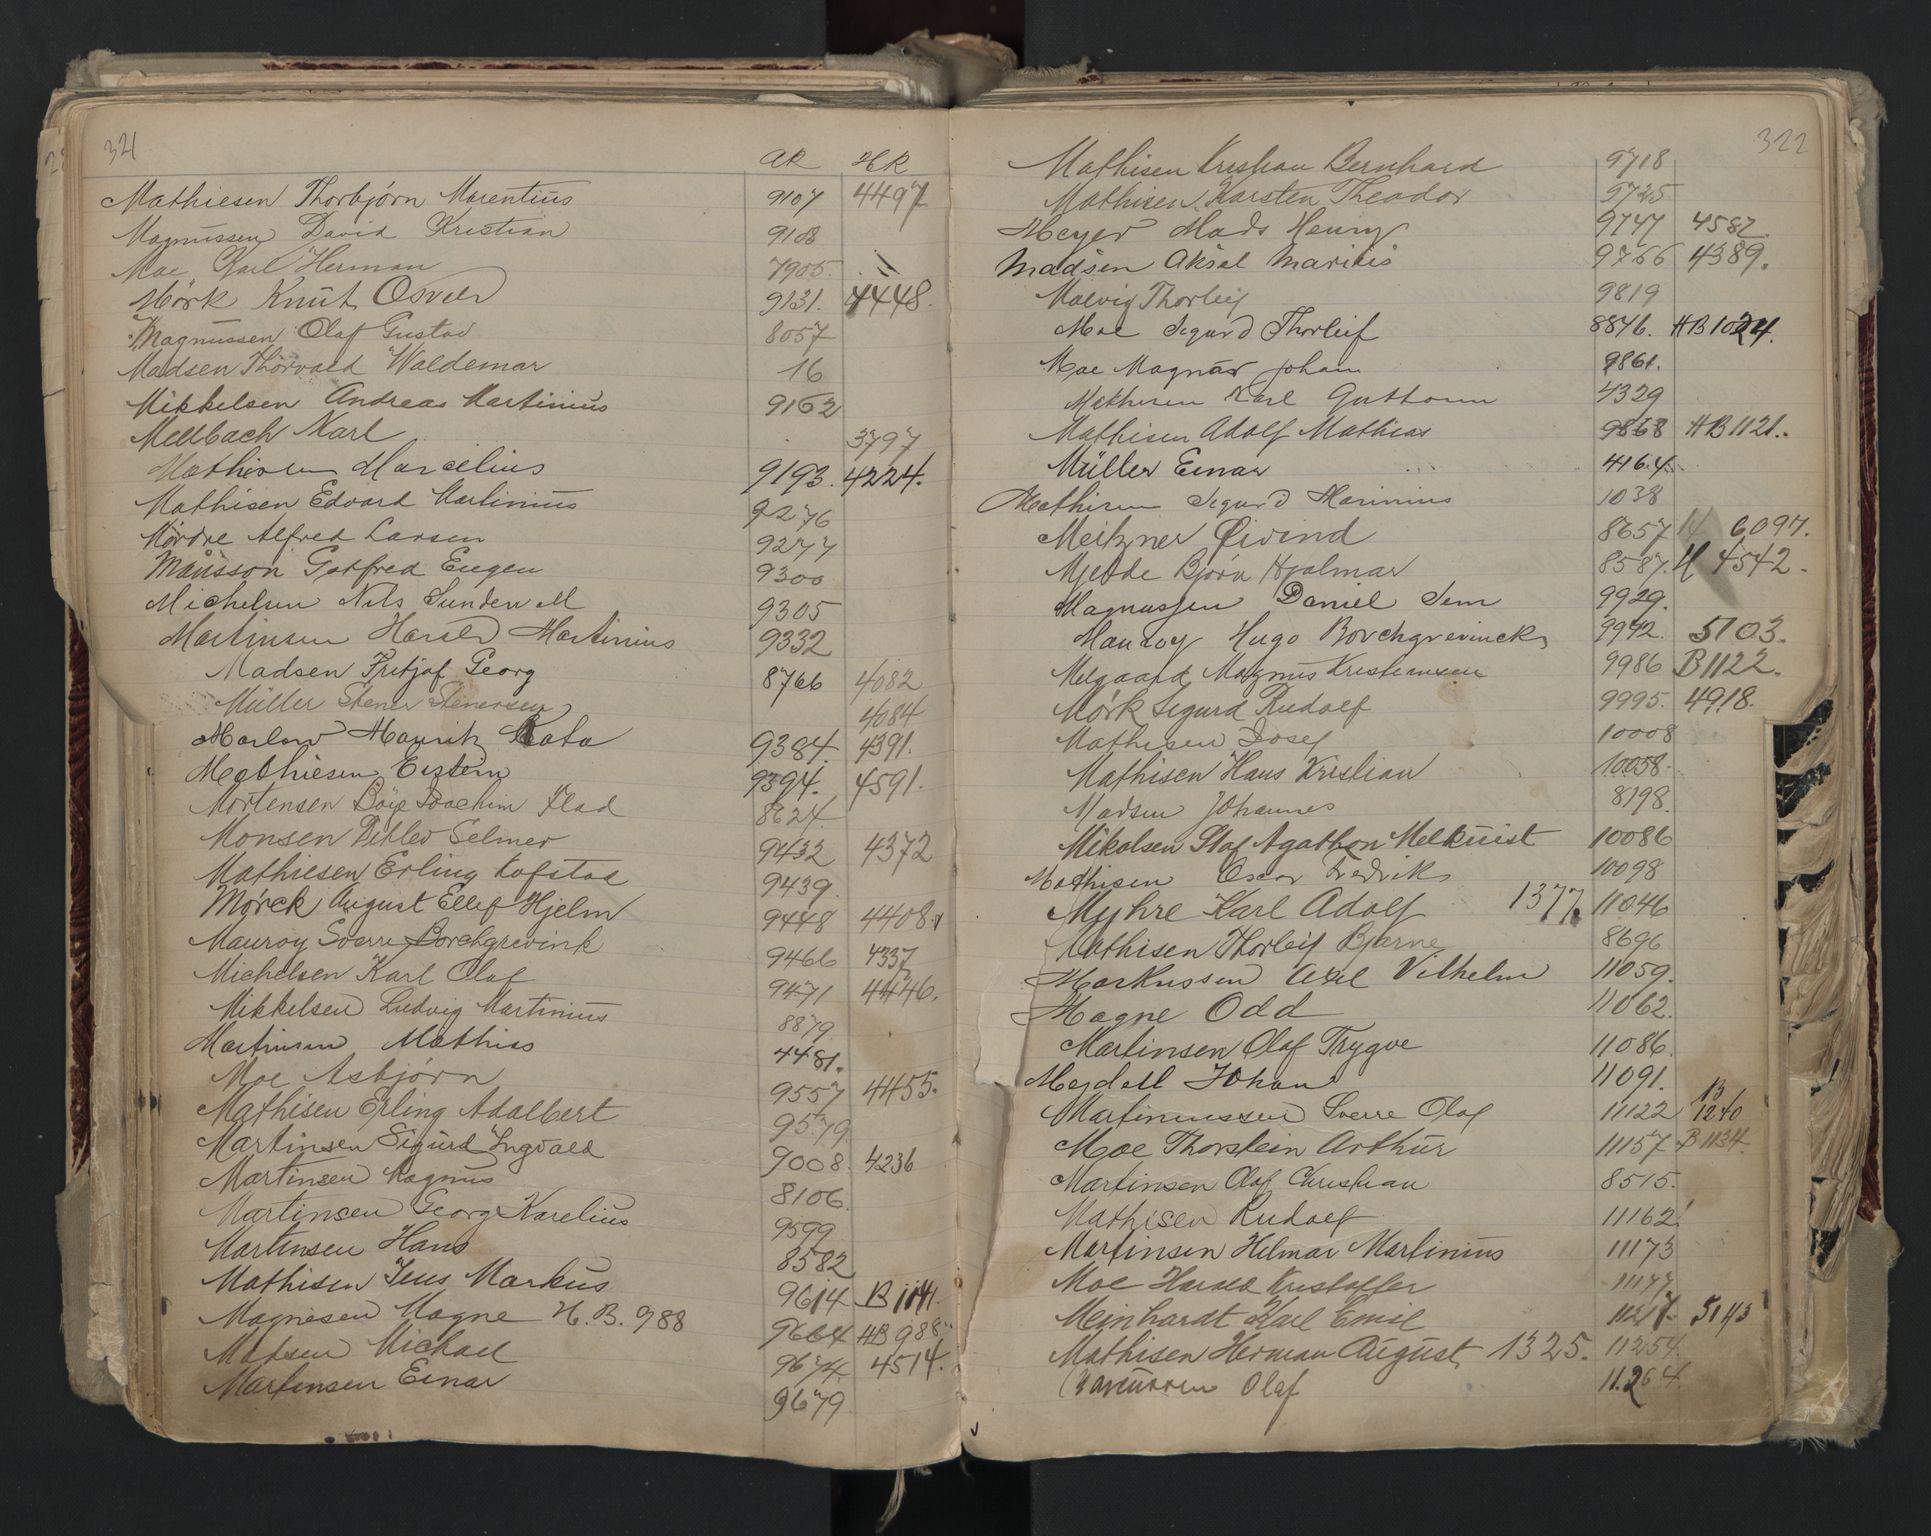 321
AR HR
Mathiesen Thorbjørn Marentius 9107 4497
Magnussen David Kristian 9108
Moe, Karl Herman 7905.
Mörk Knut Osvald 9131. 4448.
Magnussen Olaf Gustav 8057
Madsen Thorvald Waldemar 16
Mikkelsen Andreas Martinius 9162
Mellbach Karl 3797
Mathisen Marcelius 9193. 4224.
Mathisen Edvard Martinius 9276
Mørdre Alfred Larsen 9277
Månsson Gotfred Eugen 9300
Michelsen Nils Sunden M 9305
Martinsen Harald Martinius 9332
Madsen Fritjof Georg 8766 4082
Müller Stener Stenersen 4084
Marlow Maurik 9384. 4391.
Mathiesen Eystein 9394. 4591.
Mortensen Böye Joachim Flad 8624.
Monsen Detlev Selmer 9432 4372
Mathiesen Erling Kofstad 9439.
Mørck August Ellef Hjelm 9448 4408.
Mauroy Sverre Borchgrevink 9466 4337
Michelsen Karl Olaf 9471 4446.
Mikkelsen Ludvig Martinius 8879
Martinsen Mathias 4481.
Moe Asbjørn 9557 4455.
Mathisen Erling Adalbert 9579
Martinsen Sigurd Ingvald 9008 4236
Martinsen Magnus 8106
Martinsen Georg Karelius 9599
Martinsen Hans 8582
Mathisen Jens Markus 9614 B 1141.
Magnesen Magne H. B. 988 9664 HB 988
Madsen Michael 9674 4514.
Martinsen Einar 9679
322
Mathisen Kristian Bernhard 9718
Mathisen, Karsten Theodor 9725
Meyer Mads Henry 9747 4582.
Madsen Aksel Marius 9766 4389.
Malvig Thorleif 9819
Moe Sigurd Thorleif 8876. HB 1024.
Moe Magnar Johan 9861.
Mathisen Karl Guttorm 4329
Mathisen Adolf Mathias 9868 HB 1121.
Müller Einar 4164.
Mathisen Sigurd Marinius 1038
Meitzner Öivind 8657 6097.
Mjelde Bjørn Hjalmar 8587. H 4542.
Magnussen Daniel Sem 9929.
Mauroy Hugo Borchgrevinck 9942. 5103.
Melgaard, Magnus Kristiansen 9986 B 1122.
Mørk Sigurd Rudolf 9995. 4918.
Mathisen Josef 10008
Mathisen Hans Kristian 10058.
Madsen Johannes 8198.
Mikalsen Olaf Agathon Melkuist 10086
Mathisen Oscar Fredrik 10098
Myhre Karl Adolf 1377. 11046
Mathisen Thorleif Bjarne 8696
Markussen Axel Vilhelm 11059.
Magne Odd 11062.
Martinsen Olaf Trygve 11086.
Mejdell Johan 11091.
Martinussen Sverre Olaf 11122 B 1240
Moe Thorstein Arthur 11157 B 1134.
Martinsen Olaf Christian 8515.
Mathisen Rudolf 11162
Martinsen Hilmar Martinius 11173
Moe Harald Kristoffer 11177
Meinhardt Karl Emil 11217. 5143
Mathisen Herman August 1325. 11254.
Olaf 11.264